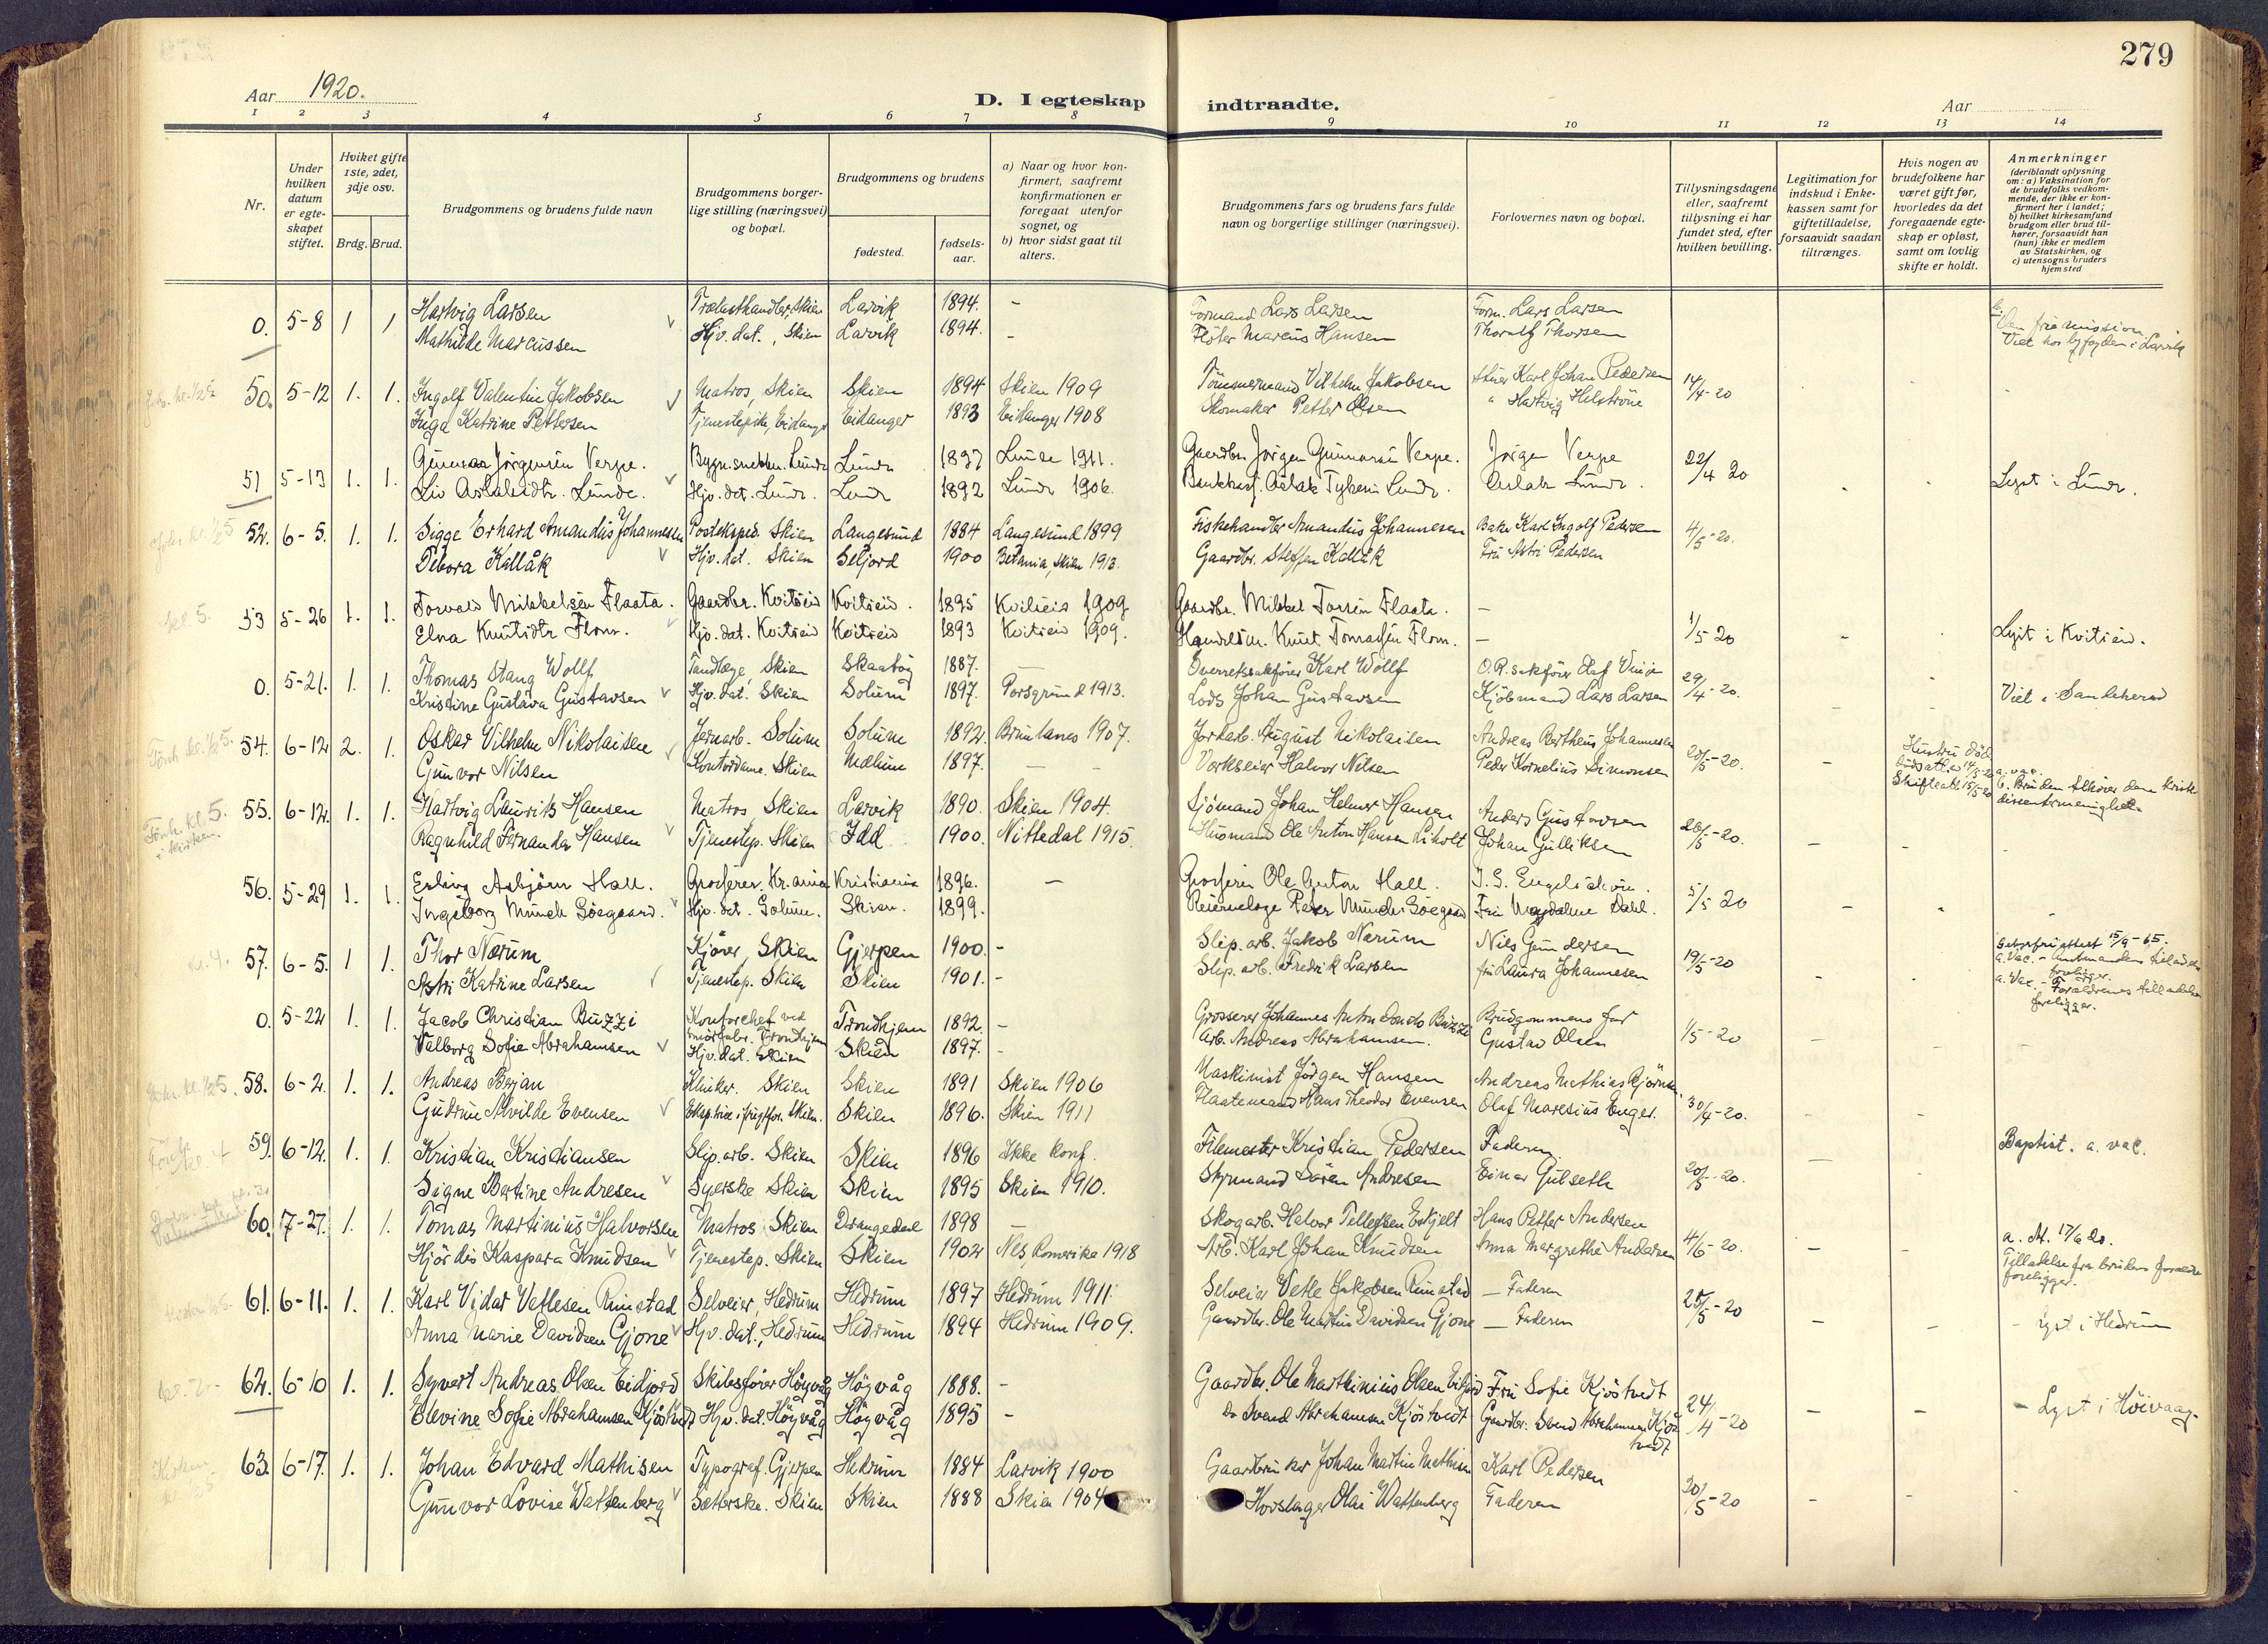 279
Aar 1920.
D. I egteskap indtraadte.
Aar
1 2 3 4 5 6 7 8 9 10 11 12 13 14
Nr.
Under hvilken datum er egteskapet stiftet.
Hviket gifte 1ste, 2det, 3dje osv.
Brdg. Brud.
Brudgommens og brudens fulde navn
Brudgommens borgerlige stilling (næringsvei) og bopæl.
Brudgommens og brudens
fødested.
fødselsaar.
a) Naar og hvor konfirmert, saafremt konfirmationen er foregaat utenfor sognet, og
b) hvor sidst gaat til alters.
Brudgommens fars og brudens fars fulde navn og borgerlige stillinger (næringsvei).
Forlovernes navn og bopæl.
Tillysningsdagene eller, saafremt tillysning ei har fundet sted, efter hvilken bevilling.
Legitimation for indskud i Enkekassen samt for giftetilladelse, forsaavidt saadan tiltrænges.
Hvis nogen av brudefolkene har været gift før, hvorledes da det foregaaende egteskap er opløst, samt om lovlig skifte er holdt.
Anmerkninger (deriblandt oplysning om: a) Vaksination for de brudefolks vedkommende, der ikke er konfirmert her i landet; b) hvilket kirkesamfund brudgom eller brud tilhører, forsaavidt han (hun) ikke er medlem av Statskirken, og c) utensogns bruders hjemsted
0. 5-8 1 1 Hartvig Larsen Trælasthandler, Skien Larvik 1894. - Formand Lars Larsen Form. Lars Larsen Den frie mission.
Mathilde Marcussen Hjv. dat., Skien Larvik 1894. - Fløter Marcus Hansen Thoralf Thorsen Viet hos byfogden i Larvik
50. 5-12 1. 1. Ingolf Valentin Jakobsen Matros, Skien Skien 1894 Skien 1909 Tömmermand Vilhelm Jakobsen Karl Johan Pedersen 14/4-20
Inga Katrine Pettersen Tjenestepike, Eidanger Eidanger 1893 Eidanger 1908 Skomaker Petter Olsen " Hartvig Helström
51 5-13 1. 1. Gunnar Jörgensen Verpe. Bygn.snekker. Lunde Lunde 1897 Lunde 1911. Gaardbr. Jörgen Gunnarsen Verpe. Jörgen Verpe 22/4 20
Liv Aslaksdtr. Lunde. Hjv. dat. Lunde. Lunde 1892 Lunde 1906. Aslak Lunde. Aslak Lunde. Lyst i Lunde.
52. 6-5. 1. 1. Sigge Erhard Amandus Johannesen Postekspd. Skien Langesund 1884 Langesund 1899 Fiskehandler Amandus Johannesen Baker Karl Ingolf Pedersen 4/5-20.
Debora Kallåk Hjv. dat. Skien Seljord 1900 Betania, Skien 1913. Gaardbr. Steffen Kallåk Fru Astri Pedersen
53 5-26 1. 1. Torvald Mikkelsen Flaata. Gaardbr. Kvitseid Kvitseid. 1895 Kvitseid 1909 Gaardbr. Mikkel Torsen Flaata. - 1/5-20
Elna Knutsdtr Flom. Hjv. dat. Kvitseid Kvitseid 1893 Kvitseid 1909. Handelsm. Knut Tomassen Flom. - Lyst i Kvitseid.
0. 5-21. 1. 1. Thomas Stang Wolff Tandlæge, Skien Skaatöy 1887. - Overretssakfører Karl Wolff O.R.sakfører Olaf 29/4-20.
Kristine Gustava Gustavsen Hjv. dat. Skien Solum 1897. Porsgrund 1913. Lods Johan Gustavsen Kjöbmand Lars Larsen Viet i Sandeherad
54. 6-12 2. 1. Oskar Vilhelm Nikolaisen Jernarb. Solum Solum 1892. Brunlanes 1907. Jordarb. August Nikolaisen Andreas Bertheus Johannesen 20/5-20. Hustru död
Gunvor Nilsen Kontordame. Skien Mælum 1897. - - Verkseier Halvor Nilsen Peder Kornelius Simonsen a. vac.
55. 6-12. 1. 1. Hartvig Laurits Hansen Matros, Skien Larvik 1890. Skien 1904. Sjömand Johan Helmer Hansen Anders Gustavsen 26/5-20. b. Bruden tilhører den
Ragnhild Fernanda Hansen Tjenestep. Skien Idd 1900. Nittedal 1915. Husmand Ole Anton Hansen Liholt Johan Gulliksen
56. 5-29 1. 1. Erling Asbjörn Hall. Grosserer. Kr.ania Kristiania 1896. - Grosserer Ole Anton Hall. 5/5 20
Ingeborg Munch Söegaard. Hjv. dat. Solum. Skien. 1899. Peder Munch Söegaard Fru Magdalene Dahl.
57. 6-5. 1 1. Thor Nærum Kjører, Skien Gjerpen 1900. - Slip. arb. Jakob Nærum Nils Gundersen 19/5-20
Astri Katrine Larsen Tjenestep. Skien Skien 1901. - Slip. arb. Fredrik Larsen fru Laura Johannesen a. Vac. - Forældrenes tilladelse foreligger.
0. 5-22 1. 1. Jacob Christian Buzzi Kontorchef ved Trondhjem 1892. - Grosserer Johannes Anton Buzzi Brudgommens far 1/5-20
Valborg Sofie Abrahamsen Hjv. dat. Skien Skien 1897. - Arb. Andreas Abrahamsen. Gustav Olsen
58. 6-2. 1. 1. Andreas Berjan Skien Skien 1891 Skien 1906 Maskinist Jörgen Hansen Andreas Mathias 30/4-20.
Gudrun Alvilde Evensen Skien. Skien 1896. Skien 1911 Flaatemand Hans Theodor Evensen Olaf Maresius Enger.
59. 6-12. 1. 1. Kristian Kristiansen Slip. arb. Skien Skien 1896 Ikke konf. Filemester Kristian Pedersen Faderen 20/5-20. Baptist. a. vac.
Signe Bertine Andresen Syerske Skien Skien 1895 Skien 1910. Styrmand Sören Andresen Einar Gulseth
60. 7-27. 1. 1. Tomas Martinius Halvorsen Matros Skien Drangedal 1898 - Skogarb. Halvor Tellefsen Hans Petter Andersen 4/6-20. a. At. 17/6 20.
Hjördis Kaspara Knudsen Tjenestep. Skien Skien 1902 Nes, Romerike 1918 Arb. Karl Johan Knudsen Anna Margrethe Andersen Tilladelse fra brudens forældre foreligger.
61. 6-11. 1. 1. Karl Vidar Vetlesen Rimstad Selveier, Hedrum Hedrum 1897 Hedrum 1911 Selveier Vetle Jakobsen Rimstad - Faderen 25/5-20
Anna Marie Davidsen Gjone Hjv. dat., Hedrum Hedrum 1894 Hedrum 1909. Gaardbr. Ole Martin Davidsen Gjone - Faderen - Lyst i Hedrum
62. 6-10 1. 1. Syvert Andreas Olsen Eidjord Skibsfører Högvåg Högvåg 1888. - Gaardbr. Ole Marthinius Olsen Eidjord Fru Sofie Kjöstvedt 24/4-20
Elevine Sofie Abrahamsen Kjöstvedt Hjv. dat. Högvåg Högvåg 1895 - Do Svend Abrahamsen Kjöstvedt Gaardbr. Svend Abrahamsen Kjöstvedt - Lyst i Höivaag.
63. 6-17. 1. 1. Johan Edvard Mathisen Typograf. Gjerpen Hedrum 1884 Larvik 1900 Gaardbruker Johan Martin Mathisen Karl Pedersen 20/5-20
Gunvor Lovise Wattenberg Sætterske. Skien Skien 1888 Skien 1904 Hovslager Olai Wattenberg Faderen